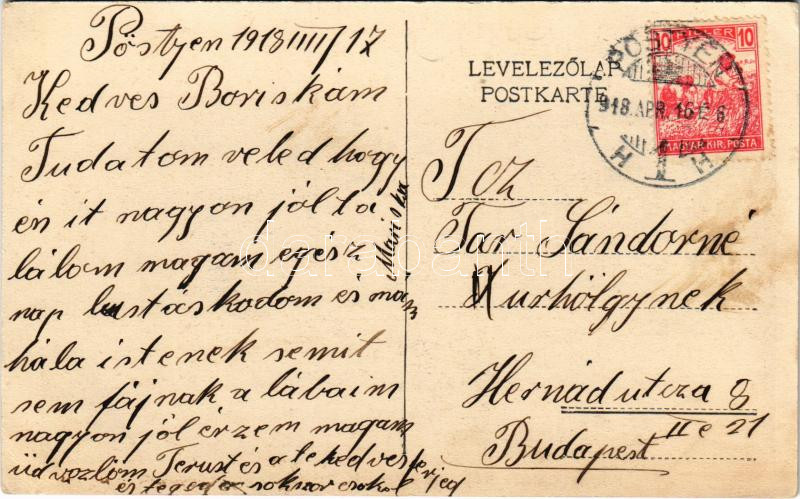 Pöstyen 1918 IIII/17
Kedves Boriskám
Tudatom veled hogy
én it nagyon jól ta
lálom magam egész
nap lustáskodom és már
hála istenek semit
sem fájnak a lábaim
nagyon jól érzem magam
üdvozlöm Terust és a te kedves
férjed
és tegedet sokszor csokol
Mariska
LEVELEZŐLAP
POSTKARTE
PÖSTYÉN
918. APR. 16
10
MAGYAR KIR. POSTA
Tcz
Tar Sándorné
Urhölgynek
Hernád utcza 8
IIe 21
Budapest
darabanth